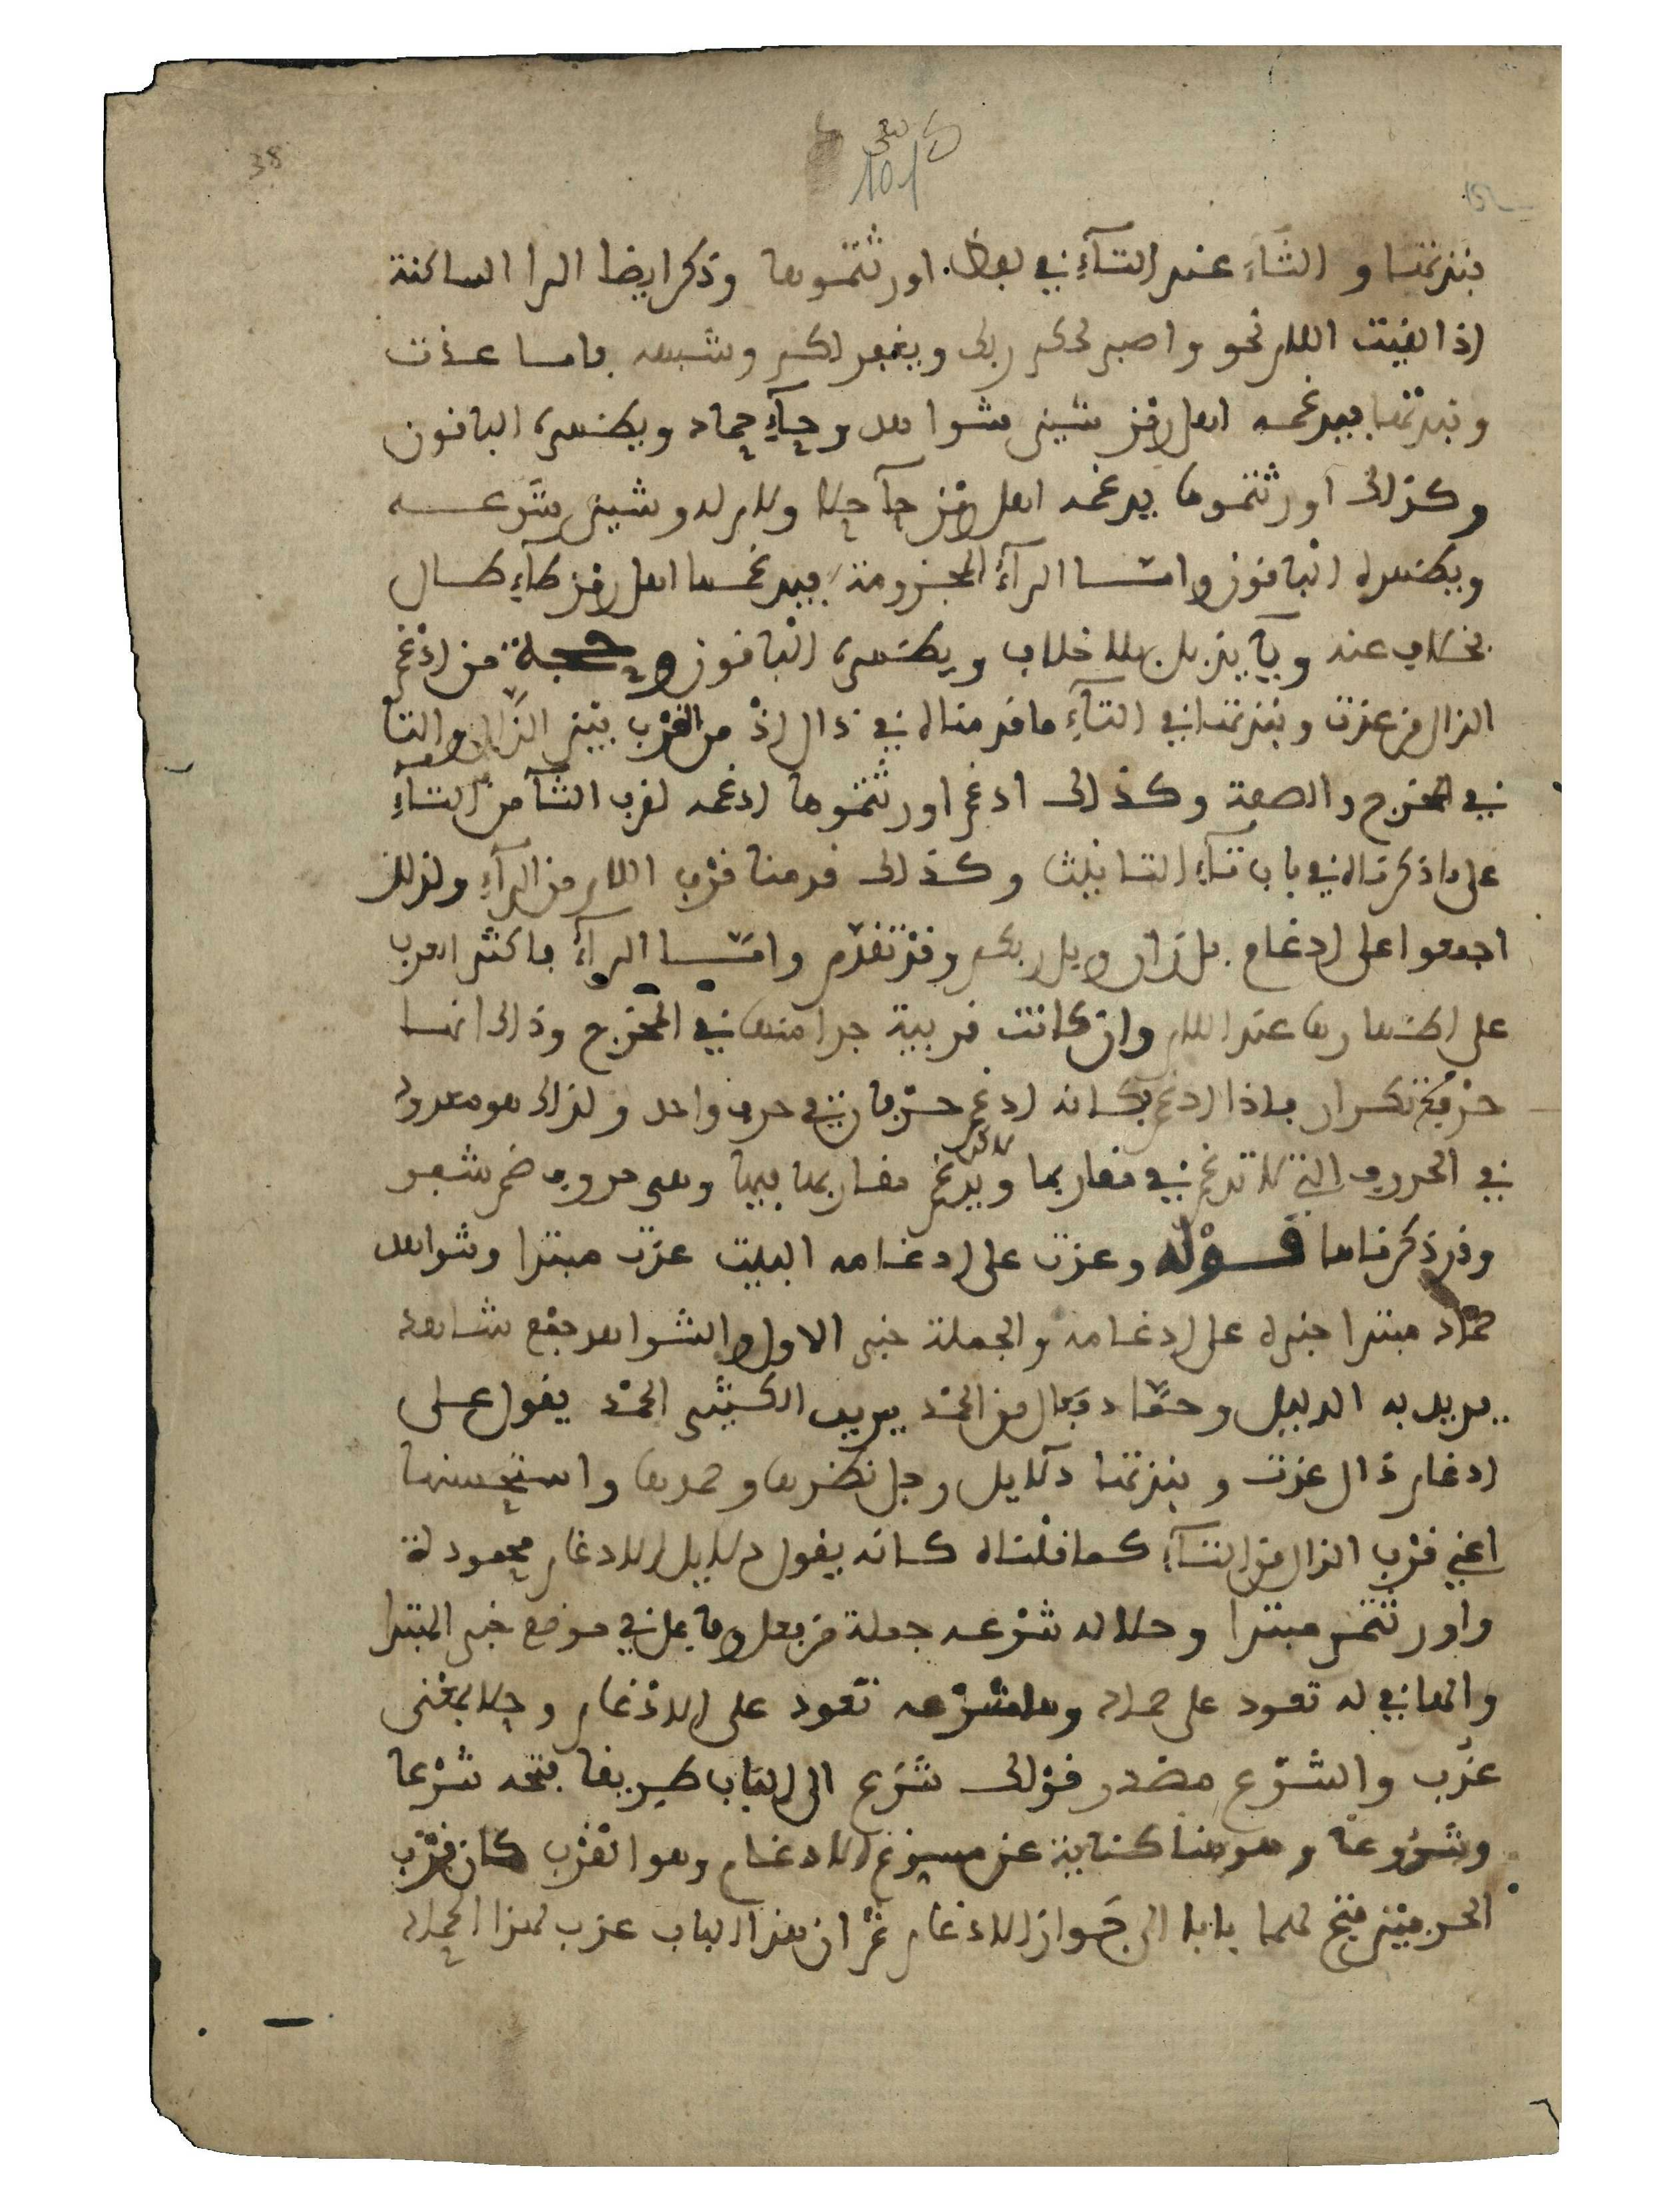 38
101
فنبذتها والثاء عند التاء في لفظ اورثتموها وذكر ايضا الرا الساكنة
اذا لقيت اللام نحو واصبر لحكم ربك ويغفر لكم وشبهه فاما عذت
ونبذتها فيدغمه اهل رمز شين شواهد وحاء حماد ويظهره الباقون
وكذلك اورثتموها يدغمه اهل رمز حا حلا ولام له وشين شرعه
ويظهره الباقون وامـا الراء المجزومة فيدغمها اهل رمز طاء طال
بخلاف عنه وياء يذبل بلا خلاف ويظهره الباقون وحجة من ادغم
الذال من عذت ونبذتها في التاء ما قدمناه في ذال اذ من القرب بين الذال والتا
في المخرج والصفة وكذلك ادغم اورثتموها ادغمه لقرب الثا من التاء
على ما ذكرناه في باب تاء التانيث وكذلك قدمنا قرب اللام من الراء ولذلك
اجمعوا على ادغام بل ران وبل ربكم وقد تقدم وامـا الراء فاكثر العرب
على اظهارها عند اللام وان كانت قريبة جدا منها في المخرج وذلك انها
حرف تكرار فاذا ادغم فكانه ادغم حرفان في حرف واحد ولذلك هو معدود
في الحروف التي لا تدغم في مقاربها ويدغم مقاربها فيها وهي حروف ضم شفر
وقد ذكرناها قـوله وعذت على ادغامه البيت عذت مبتدا وشواهد
حماد مبتدا خبره على ادغامه والجملة خبر الاول والشواهد جمع شاهد
يريد به الدليل وحماد فعال من الحمد يريد الكثير الحمد يقول على
ادغام ذال عذت ونبذتها دلايل رجل نظرها وحمدها واستحسنها
اعني قرب الذال من التاء كما قلناه كانه يقول دلايل الادغام محمودة
واورثتم مبتدا وحلا له شرعه جملة من فعل وفاعل في موضع خبر المبتدا
والها في له تعود على حماد وها شرعه تعود على الادغام وحلا بمعنى
عذب والشرع مصدر قولك شرع الى الباب طريقا فتحه شرعا
وشروعا وهو هنا كناية عن مسوغ الادغام وهو القرب كان قرب
الحرفين فتح لهما بابا الى جواز الادغام ثم ان هذا الباب عذب لهذا الحماد